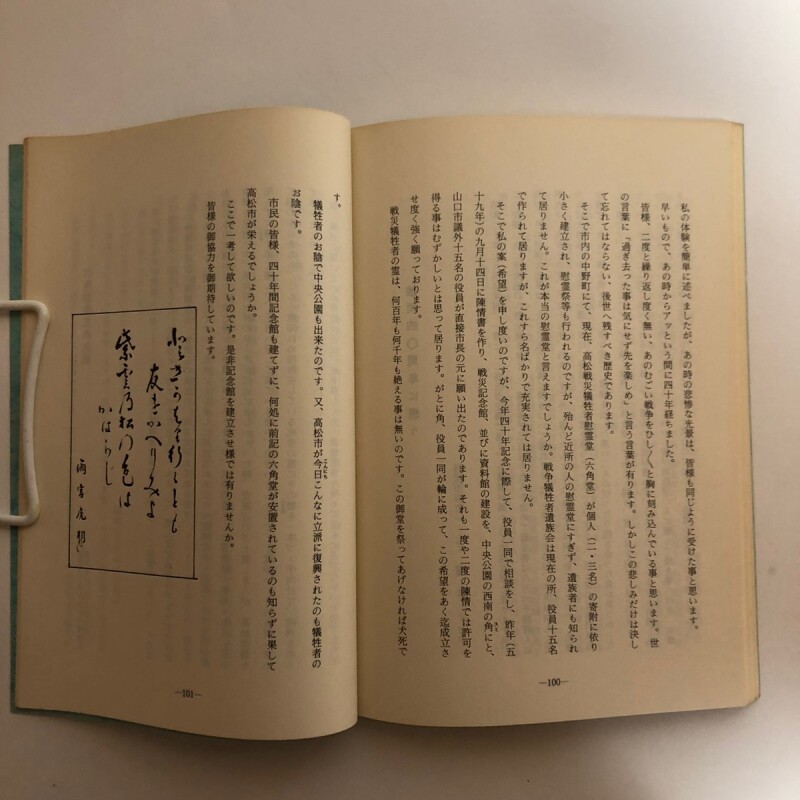 私の体験を簡単に述べましたが、あの時の悲惨な光景は、皆様も同じように受けた事と思います。
早いもので、あの時からアッという間に四十年経ちました。
皆様、二度と繰り返し度く無い、あのむごい戦争をひし〳〵と胸に刻み込んでいる事と思います。世
の言葉に「過ぎ去った事は気にせず先を楽しめ」と言う言葉が有ります。しかしこの悲しみだけは決し
て忘れてはならない、後世へ残すべき歴史であります。
そこで市内の中野町にて、現在、高松戦災犠牲者慰霊堂（六角堂）が個人（二・三名）の寄附に依り
小さく建立され、慰霊祭等も行われるのですが、殆んど近所の人の慰霊堂にすぎず、遺族者にも知られ
て居りません。これが本当の慰霊堂と言えますでしょうか。戦争犠牲者遺族会は現在の所、役員十五名
で作られて居りますが、これすら名ばかりで充実されては居りません。
そこで私の案（希望）を申し度いのですが、今年四十年記念に際して、役員一同で相談をし、昨年（五
十九年）の九月十四日に陳情書を作り、戦災記念館、並びに資料館の建設を、中央公園の西南の角にと、
山口市議外十五名の役員が直接市長の元に願い出たのであります。それも一度や二度の陳情では許可を
得る事はむずかしいとは思って居ります。がとに角、役員一同が輪に成って、この希望をあく迄成立さ
せ度く強く願っております。
戦災犠牲者の霊は、何百年も何千年も絶える事は無いのです。この御堂を祭ってあげなければ犬死で
—100—
す。
犠牲者のお陰で中央公園も出来たのです。又、高松市が今日こんなに立派に復興されたのも犠牲者の
お陰です。
市民の皆様、四十年間記念館も建てずに、何処に前記の六角堂が安置されているのも知らずに果して
高松市が栄えるでしょうか。
ここで一考して欲しいのです。是非記念館を建立させ様では有りませんか。
皆様の御協力を御期待しています。
友はかへりみよ
紫雲乃松の色は
かはらじ
—101—